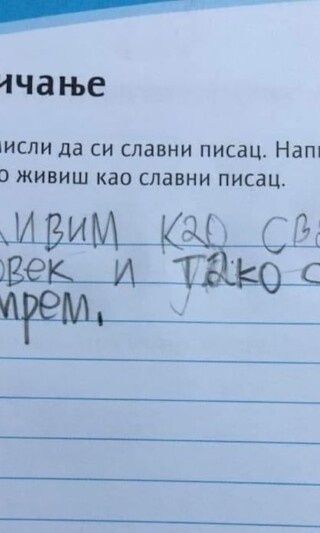 ичање
мисли да си славни писац. Напи
о живиш као славни писац.
ЖИВИМ КАО СВА
овек и ТАКО С
мрем.